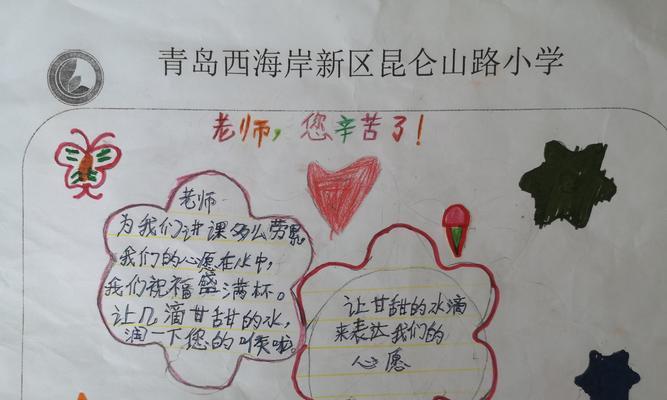 青岛西海岸新区昆仑山路小学
老师，您辛苦了！
老师
为我们讲课多么劳累
我们的心愿在水中，
我们祝福盛满杯。
让几滴甘甜的水，
润一下您的喉咙。
让甘甜的水滴
来表达我们的
心愿